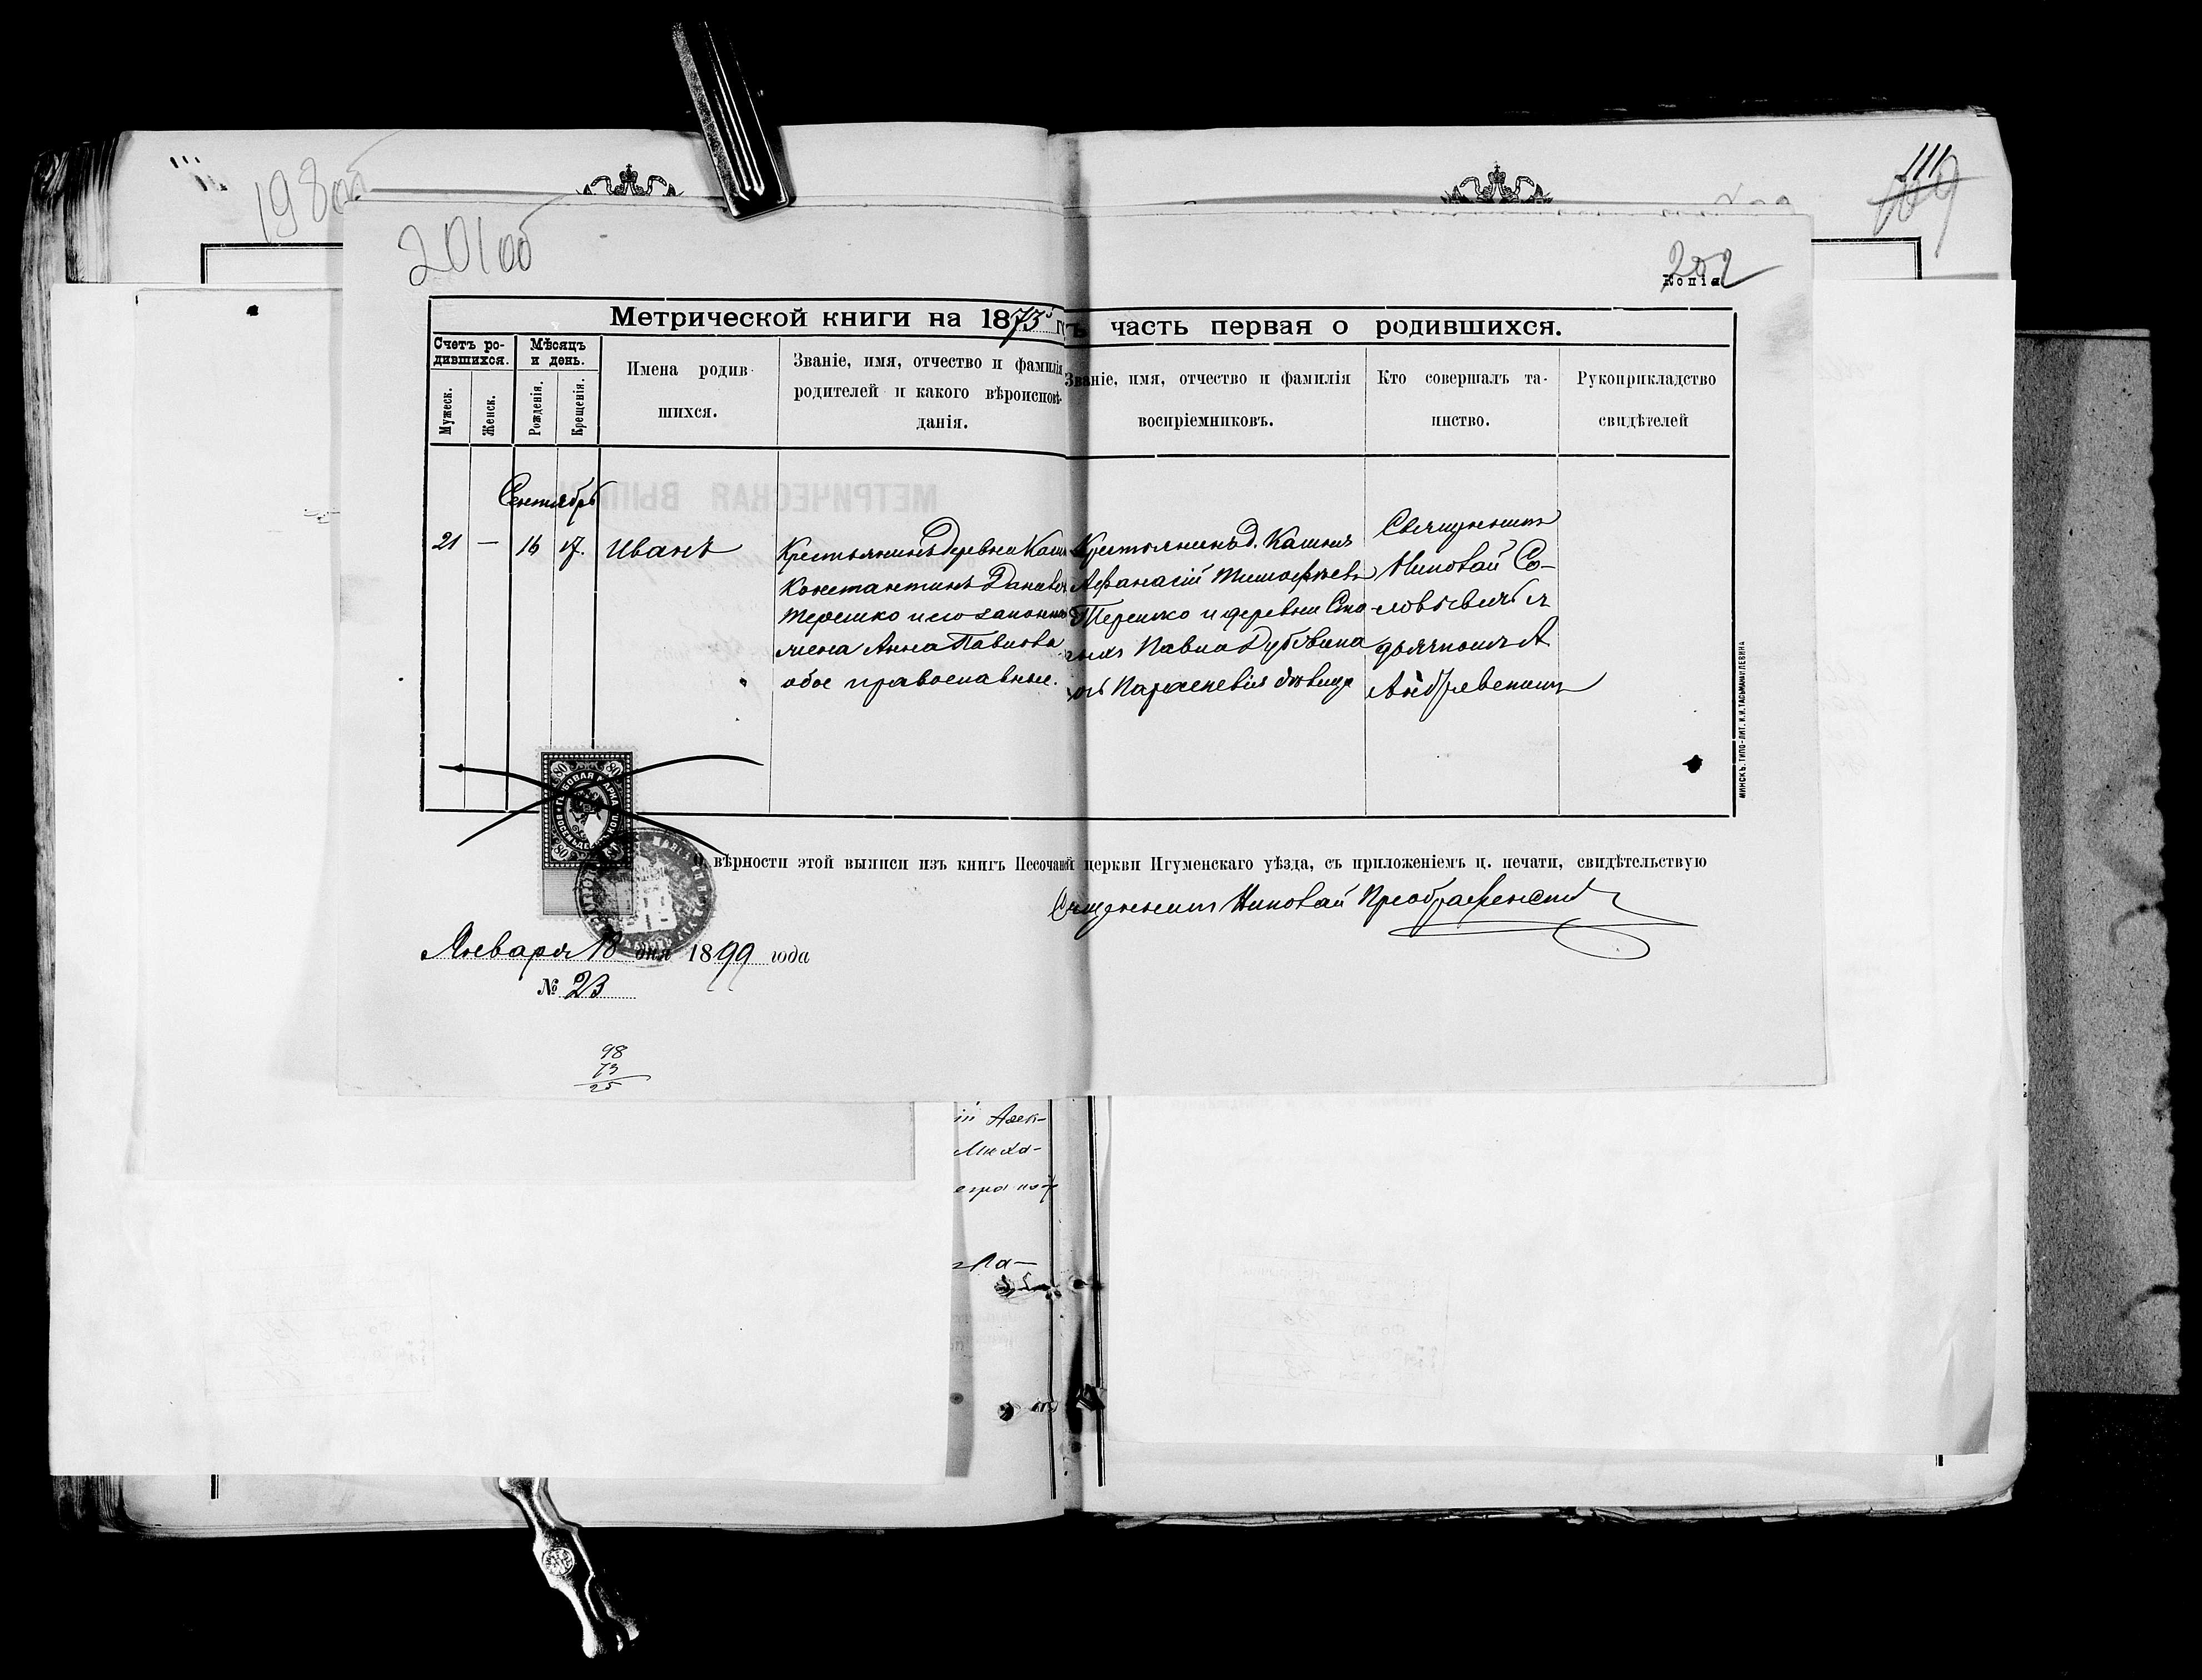 198 об
111
109
201 об
202
Копія
Метрической книги на 1873 годъ часть первая о родившихся.
Счетъ ро-
дившихся.
Мужеск.
Женск.
Мѣсяцъ
и день.
Рожденія.
Крещенія.
Имена родив-
шихся.
Званіе, имя, отчество и фамилія
родителей и какого вѣроисповѣ-
данія.
Званіе, имя, отчество и фамилія
воспріемниковъ.
Кто совершалъ та-
инство.
Рукоприкладство
свидѣтелей
Сентябрь
21 — 16 17. Иванъ
Крестьянинъ деревни
Константинъ
Терешко и его законная
жена Анна Павлова
обое православные.
Крестьянинъ д.
Афанасій Тимофѣевъ
Терешко и деревни
Павла
Параскевія дѣвица
Священникъ
Николай Со-
ловьевичъ съ
дьячкомъ А
МИНСКЪ. ТИПО-ЛИТ.
80 80
ГЕРБОВАЯ МАРКА
ВОСЕМЬДЕСЯТЪ КОП.
80
О вѣрности этой выписи изъ книгъ Песочанской церкви Игуменскаго уѣзда, съ приложеніемъ ц. печати, свидѣтельствую
Священникъ Николай Преображенскій
Января 18 дня 1899 года
№ 23
98
73
25
ій Алек-
Миха-